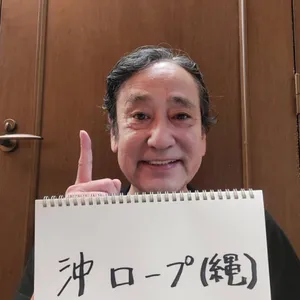 沖ロープ(縄)